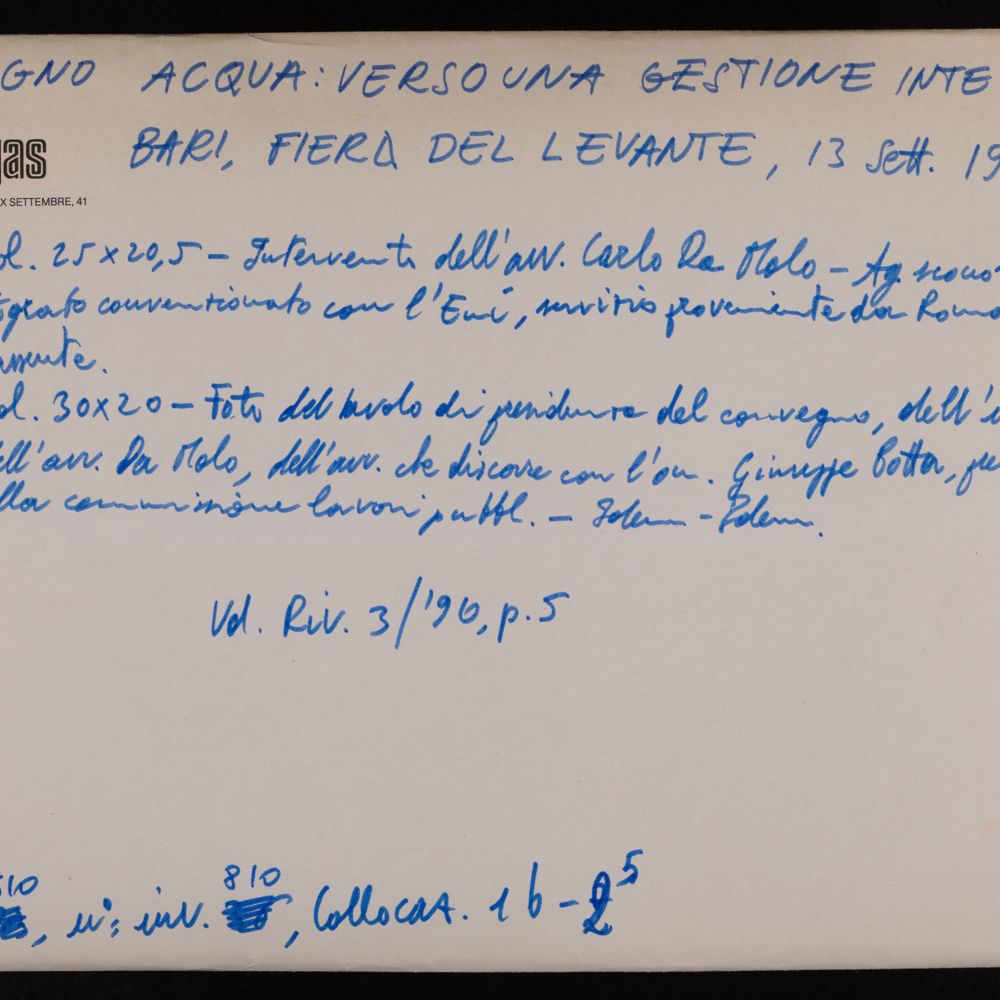 GNO ACQUA: VERSO UNA GESTIONE INTE
BARI, FIERA DEL LEVANTE, 13 Sett. 19
gas
X SETTEMBRE, 41
ol. 25x20,5 - Interventi dell'avv. Carlo Da Molo - Ag
ografo convenzionato con l'Eni, servizio proveniente da Roma
ol. 30x20 - Foto del tavolo di presidenza del convegno, dell'i
ell'avv. Da Molo, dell'avv. che discorre con l'on. Giuseppe Botta, pre
lla commissione lavori pubbl. - Idem - Idem.
Vd. Riv. 3/'90, p. 5
810
10
, n° inv. , Collocaz. 1 b - 5